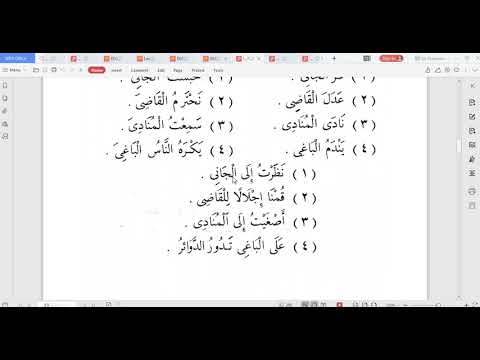 (١) فَرَّ الْجَانِي . (١) حَبَسْتُ الْجَانِيَ .
(٢) عَدَلَ الْقَاضِى . (٢) نَحْتَرِمُ الْقَاضِىَ .
(٣) نَادَى الْمُنَادِى . (٣) سَمِعْتُ الْمُنَادِىَ .
(٤) يَنْدَمُ الْبَاغِى . (٤) يَكْرَهُ النَّاسُ الْبَاغِىَ .
(١) نَظَرْتُ إِلَى الْجَانِي .
(٢) قُمْنَا إِجْلَالًا لِلْقَاضِى .
(٣) أَصْغَيْتُ إِلَى الْمُنَادِى .
(٤) عَلَى الْبَاغِى تَدُورُ الدَّوَائِرُ .